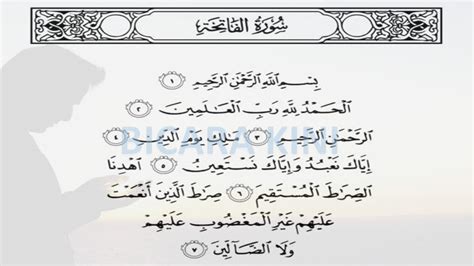 سُورَةُ الْفَاتِحَةِ
بِسْمِ اللَّهِ الرَّحْمَٰنِ الرَّحِيمِ ١
الْحَمْدُ لِلَّهِ رَبِّ الْعَالَمِينَ ٢
الرَّحْمَٰنِ الرَّحِيمِ ٣ مَالِكِ يَوْمِ الدِّينِ ٤
إِيَّاكَ نَعْبُدُ وَإِيَّاكَ نَسْتَعِينُ ٥ اهْدِنَا
الصِّرَاطَ الْمُسْتَقِيمَ ٦ صِرَاطَ الَّذِينَ أَنْعَمْتَ
عَلَيْهِمْ غَيْرِ الْمَغْضُوبِ عَلَيْهِمْ
وَلَا الضَّالِّينَ ٧
BICARA KINI